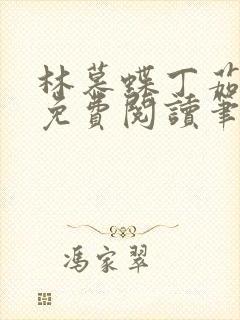 林慕蝶丁茹
免費閱讀筆
馮家翠